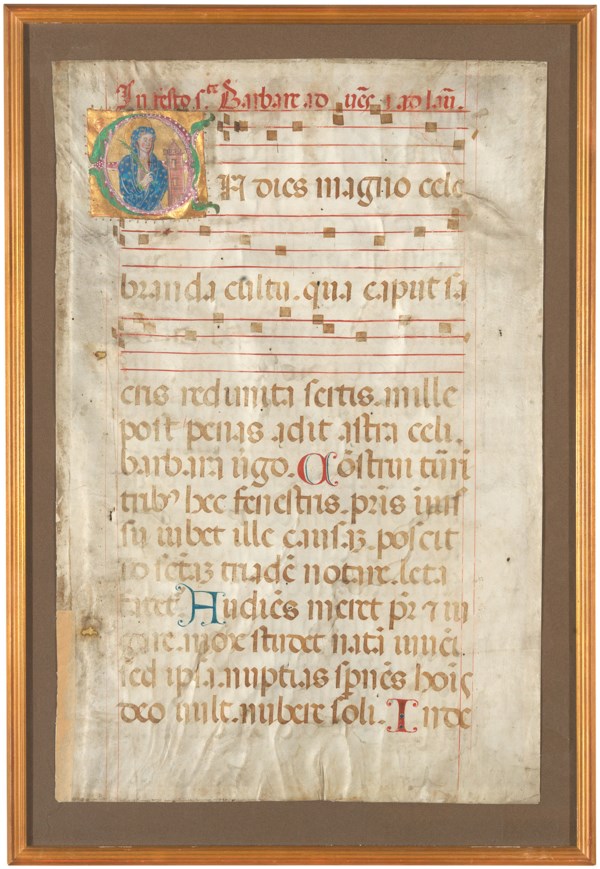 In festo s. Barbare ad ues. 7 ad lau.
EN dies magno cele
branda cultu. qua caput sa
cris redimita sertis. mille
post penas adit astra celi.
barbara uigo. Cōstrui
tribꝰ hec fenestris. pr̄is
su iubet ille causaꝫ poscit
triadē notare. leta
Audiēs meret pr̄ ⁊ iu
gare. mox studet natā
sed ipsa nuptias spnēs hoīs
deo uult. nubere soli. Inde